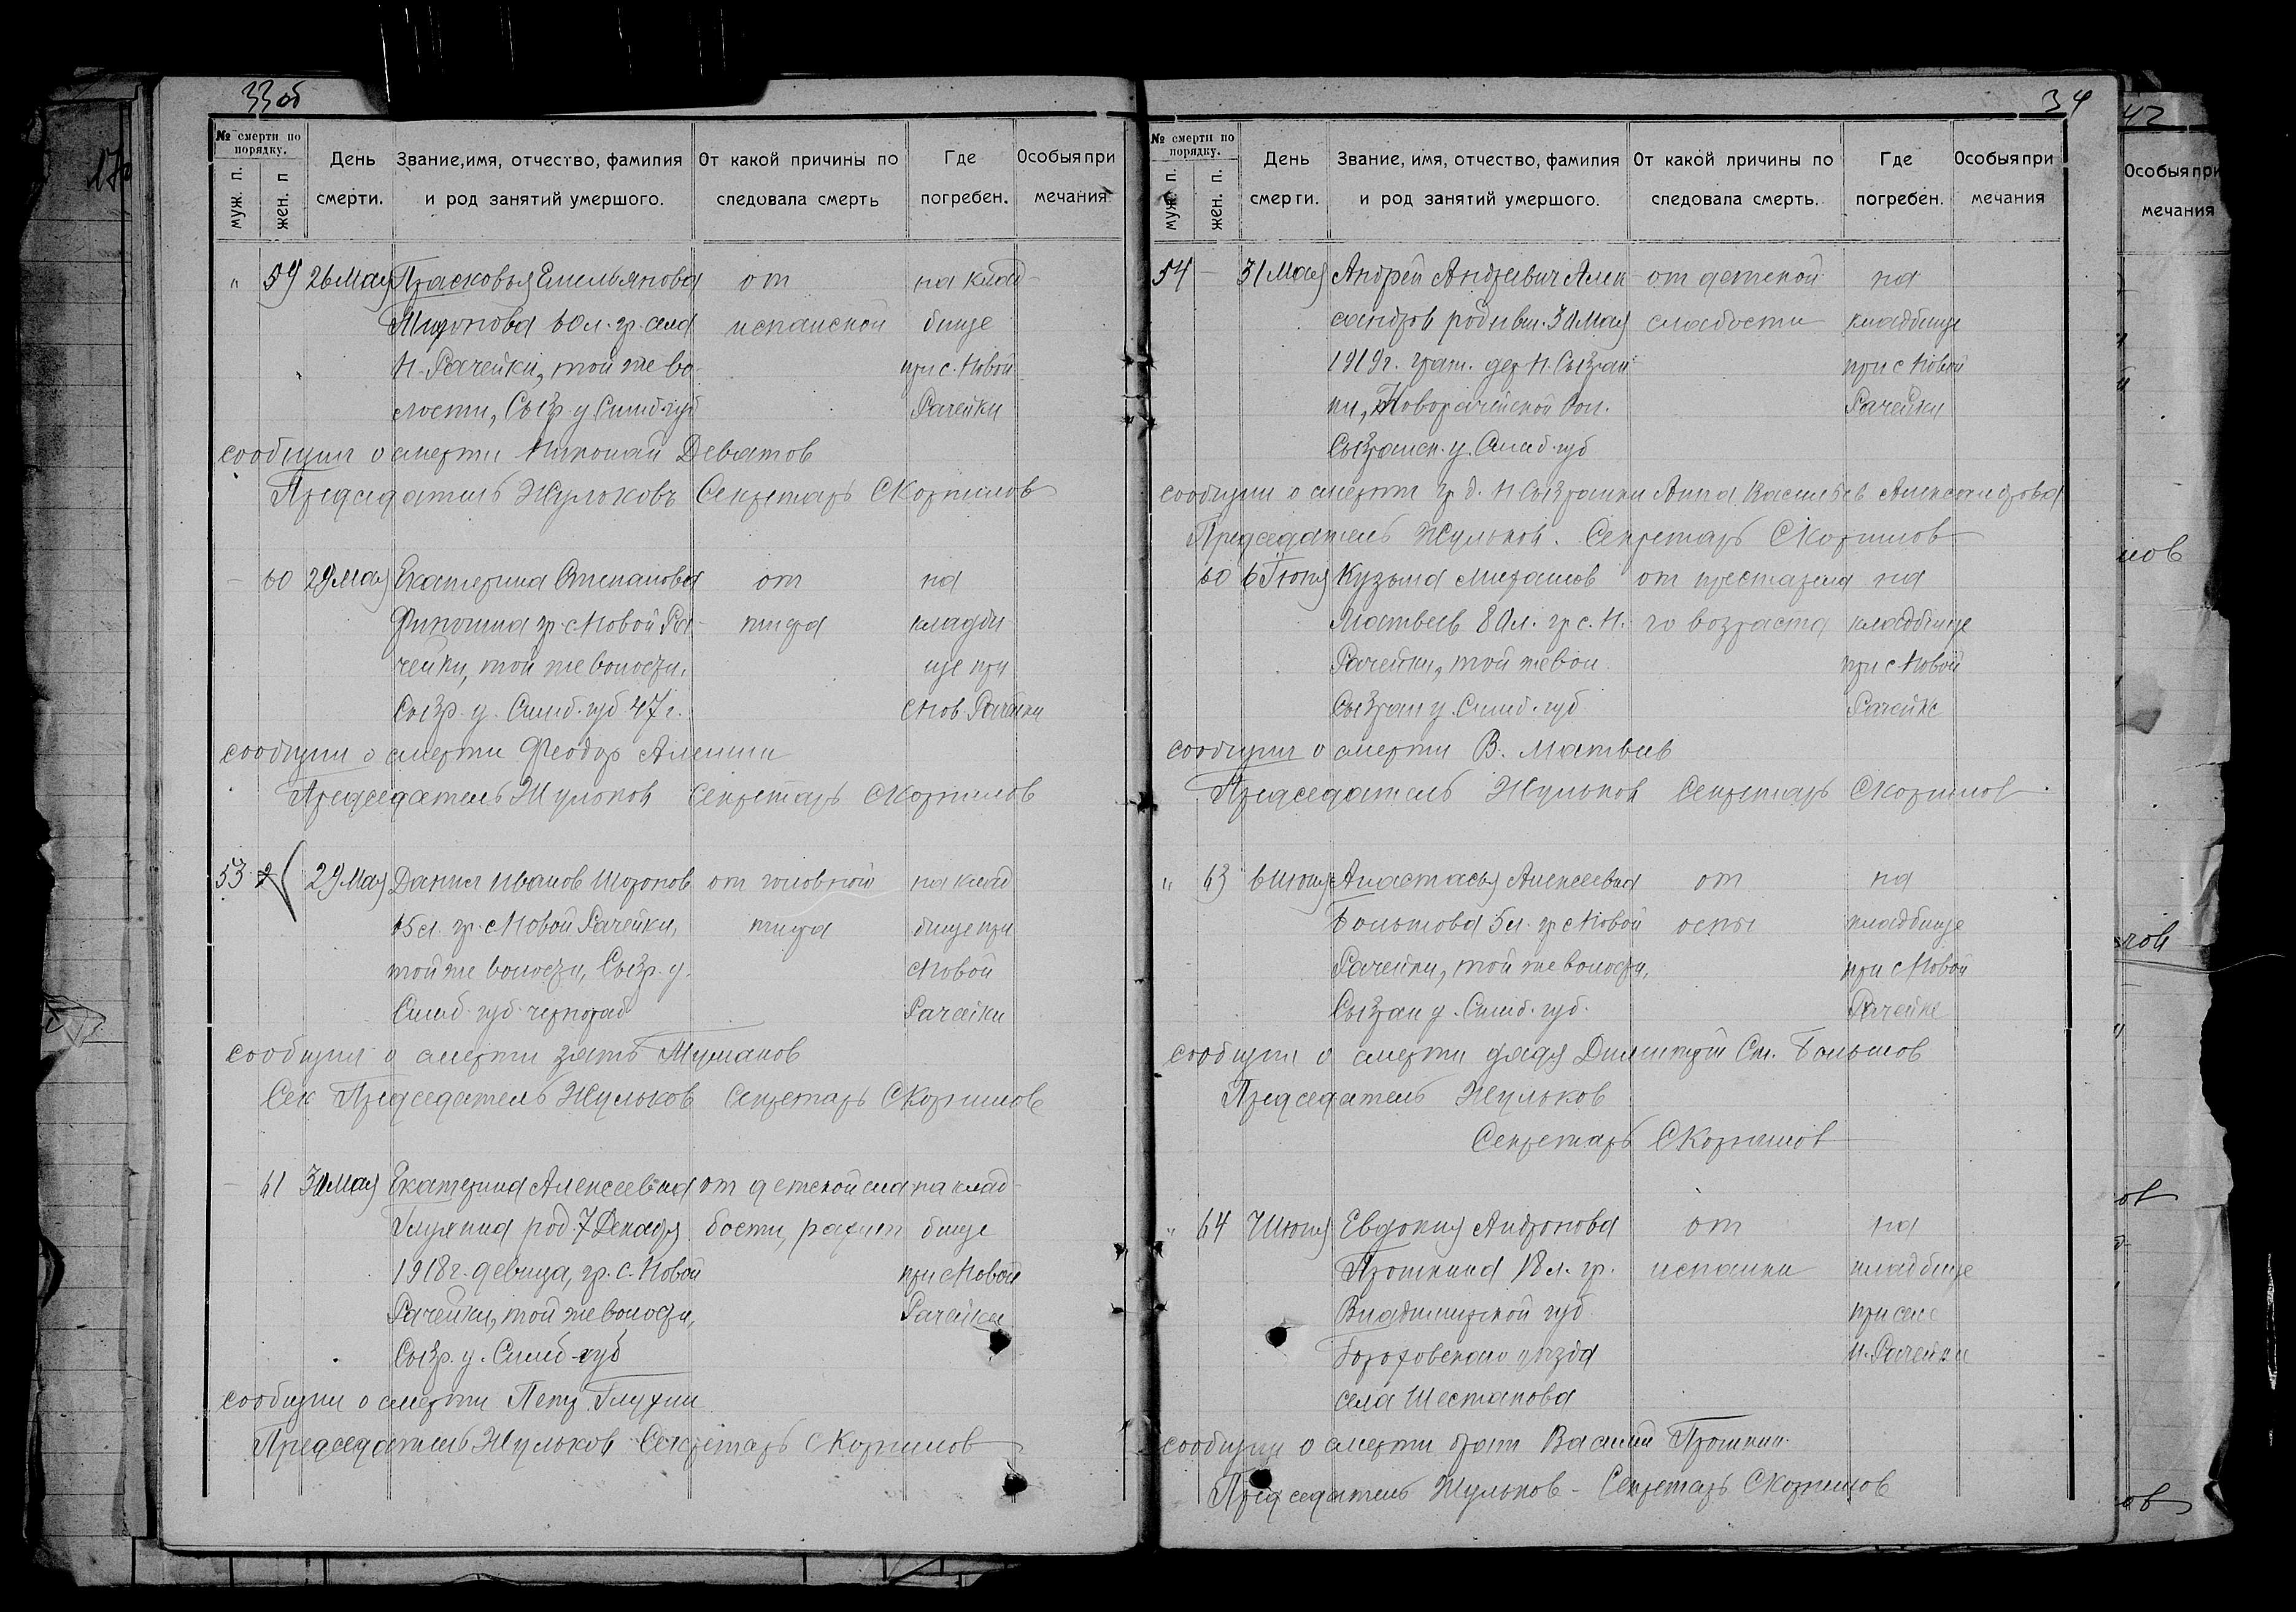 33об
№ смерти по порядку.
муж. п.
жен. п
День смерти.
Звание, имя, отчество, фамилия и род занятий умершого.
От какой причины последовала смерть
Где погребен.
Особыя примечания
" 59 26 Мая Прасковья Емельянова от на клад-
Миронова 60 л. гр. села испанской бище
Н. Рачейки, той же во- при с. Новой
лости, Сызр. у Симб. губ Рачейки
сообщил о смерти Николай Деватов
Председатель Жульковъ Секретарь СКорнилов
- 60 29 Мая Екатерина Степанова от на
гр. с Новой Ра- тифа кладби
чейки, той же волости, ще при
Сызр. у. Симб. губ 47 г. с Нов Рачейки
сообщил о смерти Феодор Алешин
Председатель Жульков Секретарь СКорнилов
53 29 Мая Данил Иванов от головного на клад
65 л. гр. с Новой Рачейки, тифа бище при
той же волости, Сызр. у. с Новой
Симб. губ. чернораб Рачейки
сообщил о смерти зять Туманов
Сек Председатель Жульков Секретарь СКорнилов
- 61 30 Мая Екатерина Алексеевна от детской сла на клад-
Глухина род. 7 Декабря бости, рахит бище
1918 г. девица, гр. с. Новой при с Новой
Рачейки, той же волости, Рачейки
Сызр. у. Симб. губ
сообщил о смерти Петр Глухин
Председатель Жульков Секретарь СКорнилов
34
№ смерти по порядку.
муж. п.
жен. п.
День смерти.
Звание, имя, отчество, фамилия и род занятий умершого.
От какой причины последовала смерть.
Где погребен.
Особыя примечания
54 - 31 Мая Андрей Андреевич Алек- от детской на
сандров родивш. 30 Мая слабости кладбище
1919 г. граж. дер Н. Сызран при с Новой
ки, Новорачейской вол. Рачейки
Сызранск. у. Симб. губ
сообщил о смерти гр д. Н Сызранки Анна Васильев Александрова
Председатель Жульков. Секретарь СКорнилов
60 6 Июня Кузьма Михайлов от престарела на
Матвеев 80 л. гр с. Н. го возраста кладбище
Рачейки, той же вол. при с Новой
Сызран у. Симб. губ Рачейке
сообщил о смерти В. Матвеев
Председатель Жульков Секретарь СКорнилов
" 63 6 Июня Анастасья Алексеевна от на
Большова 5 л. гр с Новой оспы кладбище
Рачейки, той же волости, при с Новой
Сызран у. Симб. губ. Рачейке
сообщил о смерти дядя Димитрий Ст. Большов
Председатель Жульков
Секретарь СКорнилов
" 64 7 Июня Евдокия Андронова от на
Прошкина 18 л. гр. испанки кладбище
Владимирской губ. при селе
Гороховского уезда Н. Рачейки
села Шестакова
сообщил о смерти брат Василий Прошкин.
Председатель Жульков - Секретарь СКорнилов
42
Особыя при
мечания